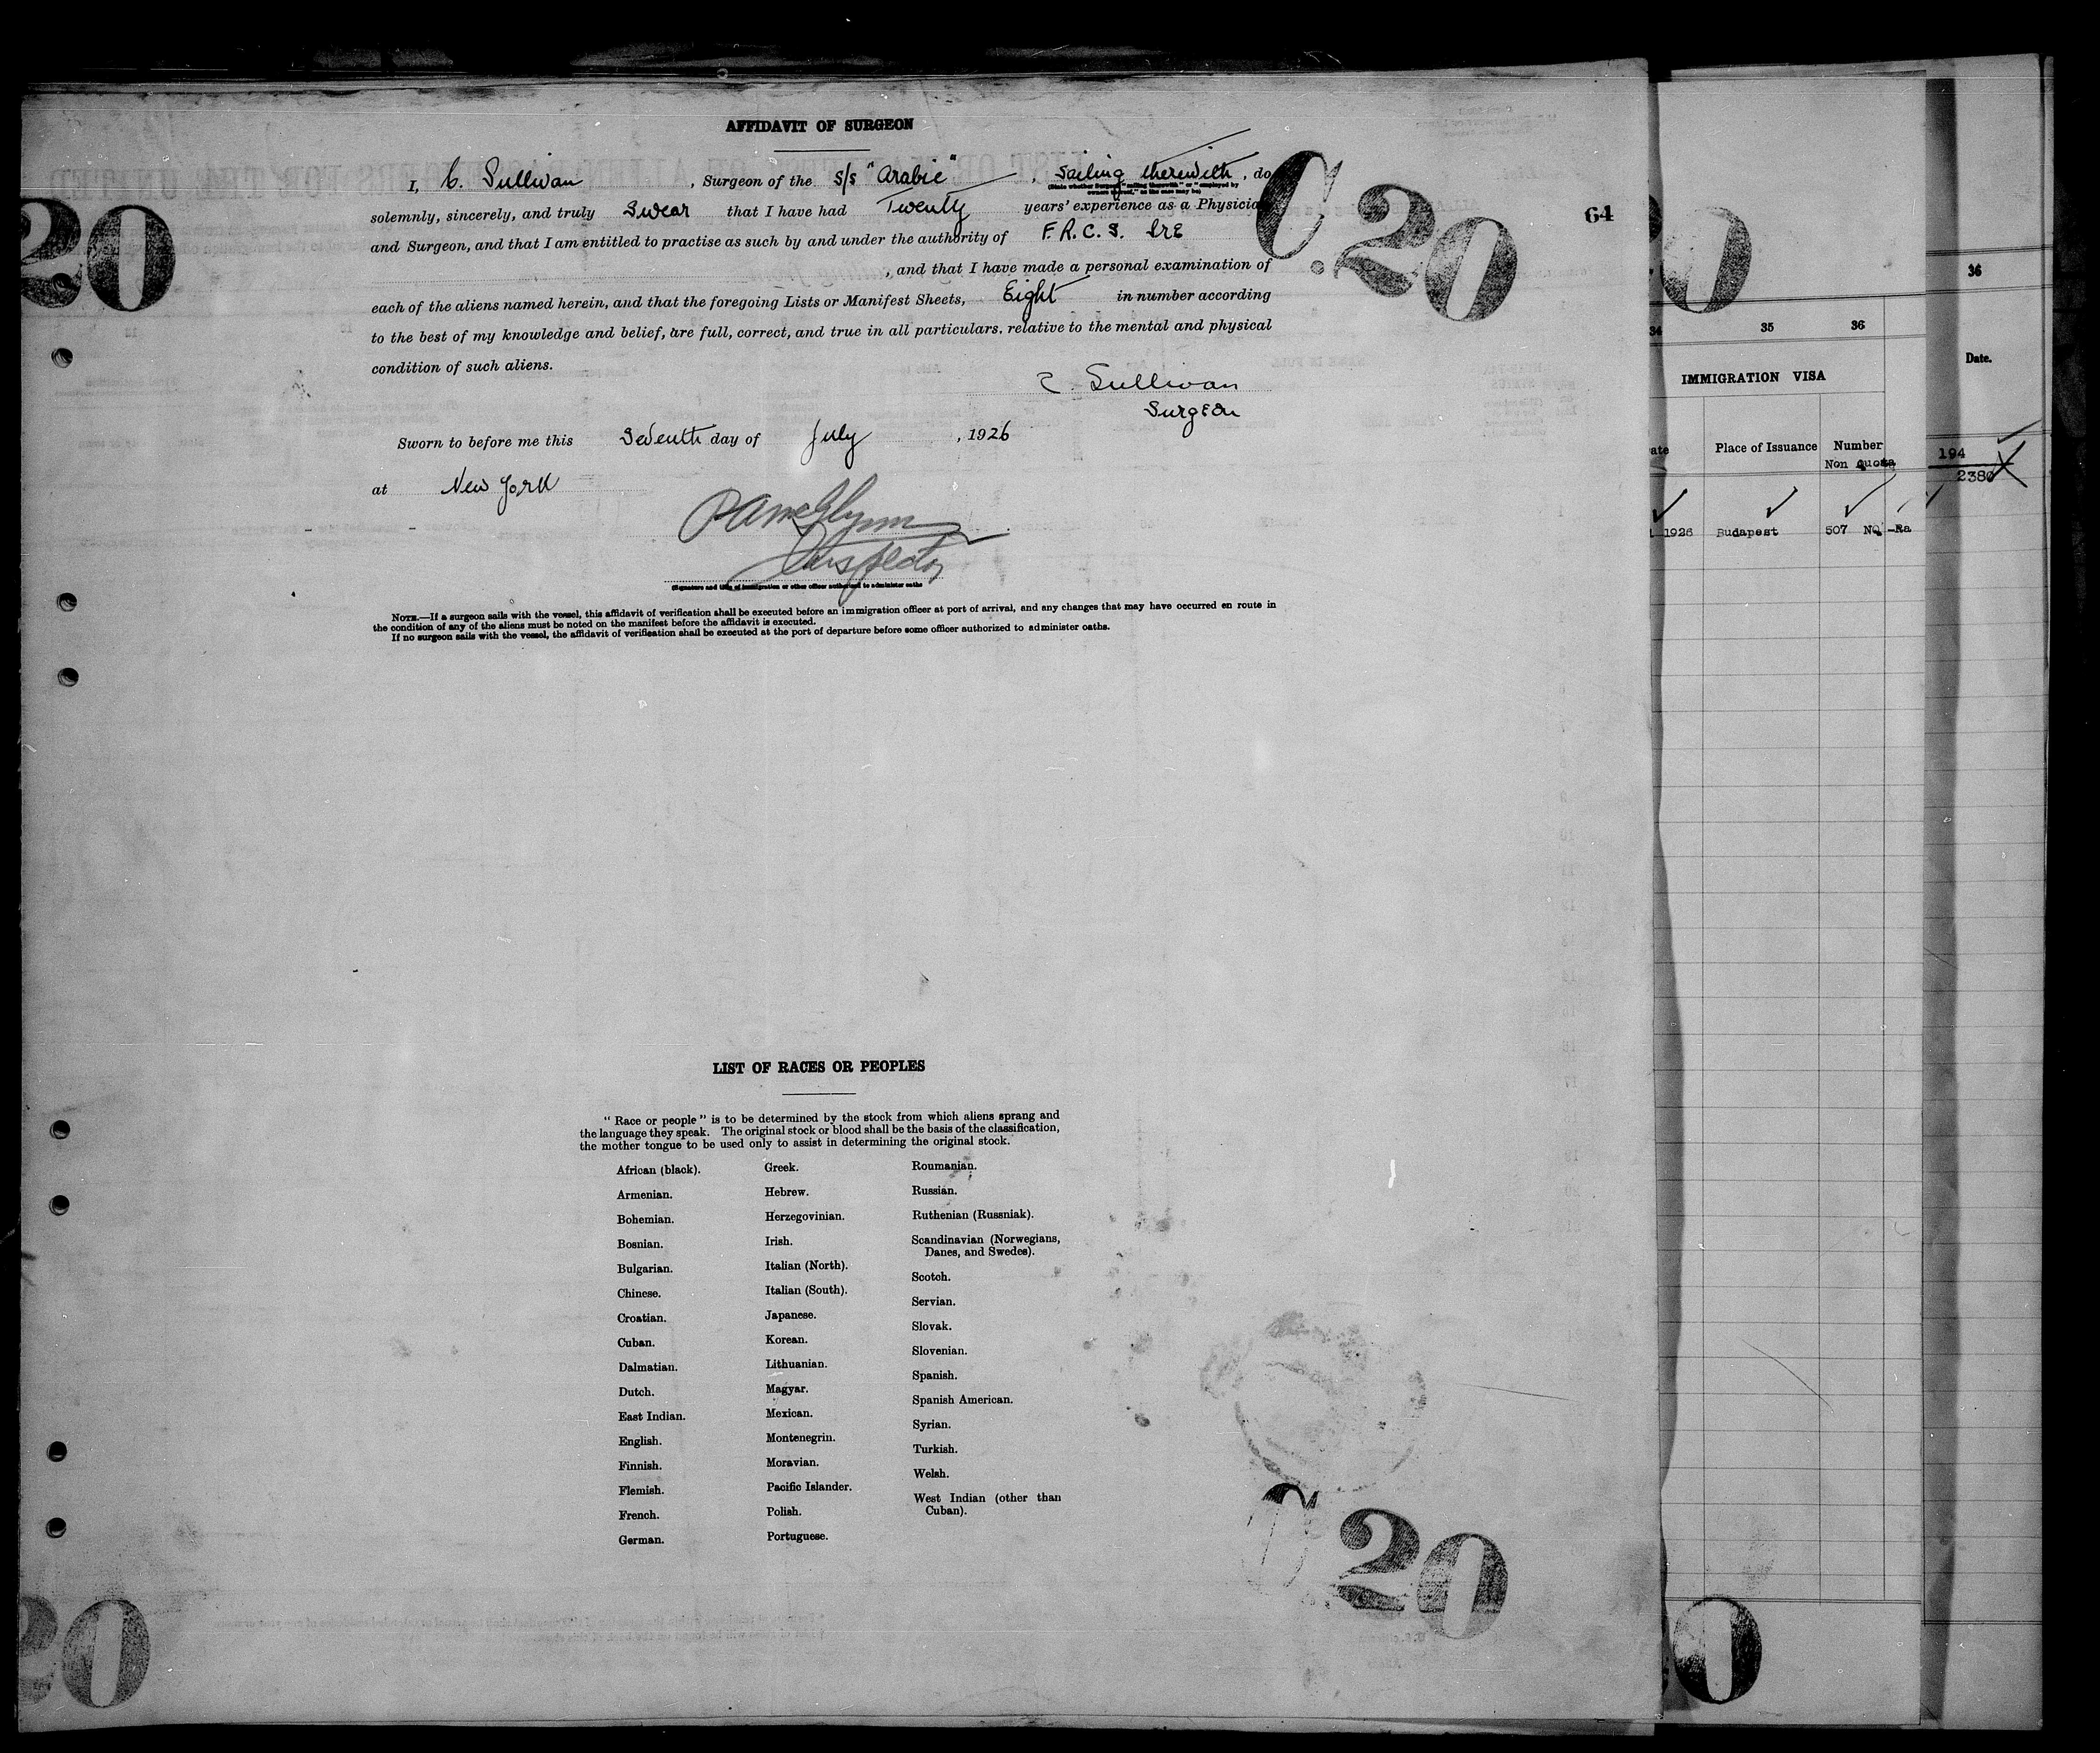 AFFIDAVIT OF SURGEON
I, C. Sullivan, Surgeon of the s/s "Arabic", Sailing therewith, do
(State whether Surgeon "sailing therewith" or "employed by
owners thereof," as the case may be)
solemnly, sincerely, and truly Swear that I have had Twenty years' experience as a Physician
and Surgeon, and that I am entitled to practise as such by and under the authority of F. R. C. S. IRE
, and that I have made a personal examination of
each of the aliens named herein, and that the foregoing Lists or Manifest Sheets, Eight in number according
to the best of my knowledge and belief, are full, correct, and true in all particulars, relative to the mental and physical
condition of such aliens.
C. Sullivan
Surgeon
Sworn to before me this Seventh day of July, 1926
at New York
Inspector
(Signature and title of immigration or other officer authorized to administer oaths
NOTE.—If a surgeon sails with the vessel, this affidavit of verification shall be executed before an immigration officer at port of arrival, and any changes that may have occurred en route in
the condition of any of the aliens must be noted on the manifest before the affidavit is executed.
If no surgeon sails with the vessel, the affidavit of verification shall be executed at the port of departure before some officer authorized to administer oaths.
20
C.20
64
LIST OF RACES OR PEOPLES
"Race or people" is to be determined by the stock from which aliens sprang and
the language they speak. The original stock or blood shall be the basis of the classification,
the mother tongue to be used only to assist in determining the original stock.
African (black).
Armenian.
Bohemian.
Bosnian.
Bulgarian.
Chinese.
Croatian.
Cuban.
Dalmatian.
Dutch.
East Indian.
English.
Finnish.
Flemish.
French.
German.
Greek.
Hebrew.
Herzegovinian.
Irish.
Italian (North).
Italian (South).
Japanese.
Korean.
Lithuanian.
Magyar.
Mexican.
Montenegrin.
Moravian.
Pacific Islander.
Polish.
Portuguese.
Roumanian.
Russian.
Ruthenian (Russniak).
Scandinavian (Norwegians,
Danes, and Swedes).
Scotch.
Servian.
Slovak.
Slovenian.
Spanish.
Spanish American.
Syrian.
Turkish.
Welsh.
West Indian (other than
Cuban).
20
C 20
0
34 35 36
IMMIGRATION VISA
Place of Issuance Number
Non Quota
1926 Budapest 507 NQ -Ra
0
36
Date.
194
2380